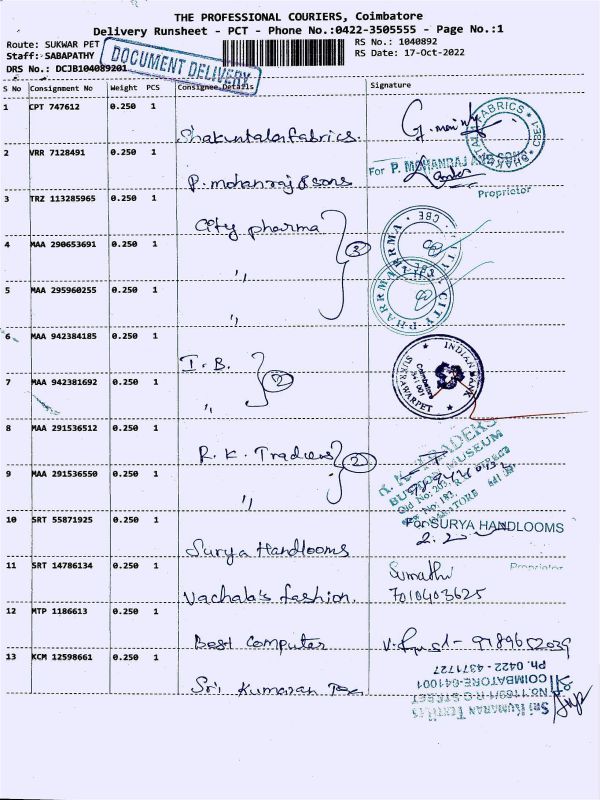 THE PROFESSIONAL COURIERS, Coimbatore
Delivery Runsheet - PCT - Phone No.:0422-3505555 - Page No.:1
Route: SUKWAR PET
RS No.: 1040892
Staff: SABAPATHY
RS Date: 17-Oct-2022
DRS No.: DCJB104089201
DOCUMENT DELIVERY
S No Consignment No Weight PCS Consignee Details Signature
1 CPT 747612 0.250 1
Shakuntala fabrics.
FABRICS CBE-1
2 VRR 7128491 0.250 1
P. mohanraj & sons
For P. MOHANRAJ AND SONS
Proprietor
3 TRZ 113285965 0.250 1
City pharma
CITY PHARMA CBE
4 MAA 290653691 0.250 1
,, 3
CITY PHARMA CBE
5 MAA 295960255 0.250 1
,,
6 MAA 942384185 0.250 1
I.B.
INDIAN BANK
Coimbatore
641 001
SUKRAWARPET
7 MAA 942381692 0.250 1
,, 2
8 MAA 291536512 0.250 1
R.K. Traders 2
R.K. TRADERS
BUTTON MUSEUM
9 MAA 291536550 0.250 1
,,
Old No: 203,
New No: 183,
COIMBATORE
10 SRT 55871925 0.250 1
Surya Handlooms
For SURYA HANDLOOMS
Proprietor
11 SRT 14786134 0.250 1
Vachala's fashion.
Sumathi
7010403625
12 MTP 1186613 0.250 1
Best Computer
9789652039
13 KCM 12598661 0.250 1
Sri Kumaran Tex
SRI KUMARAN TEXTILES
COIMBATORE-641001
Ph. 0422 - 4371727